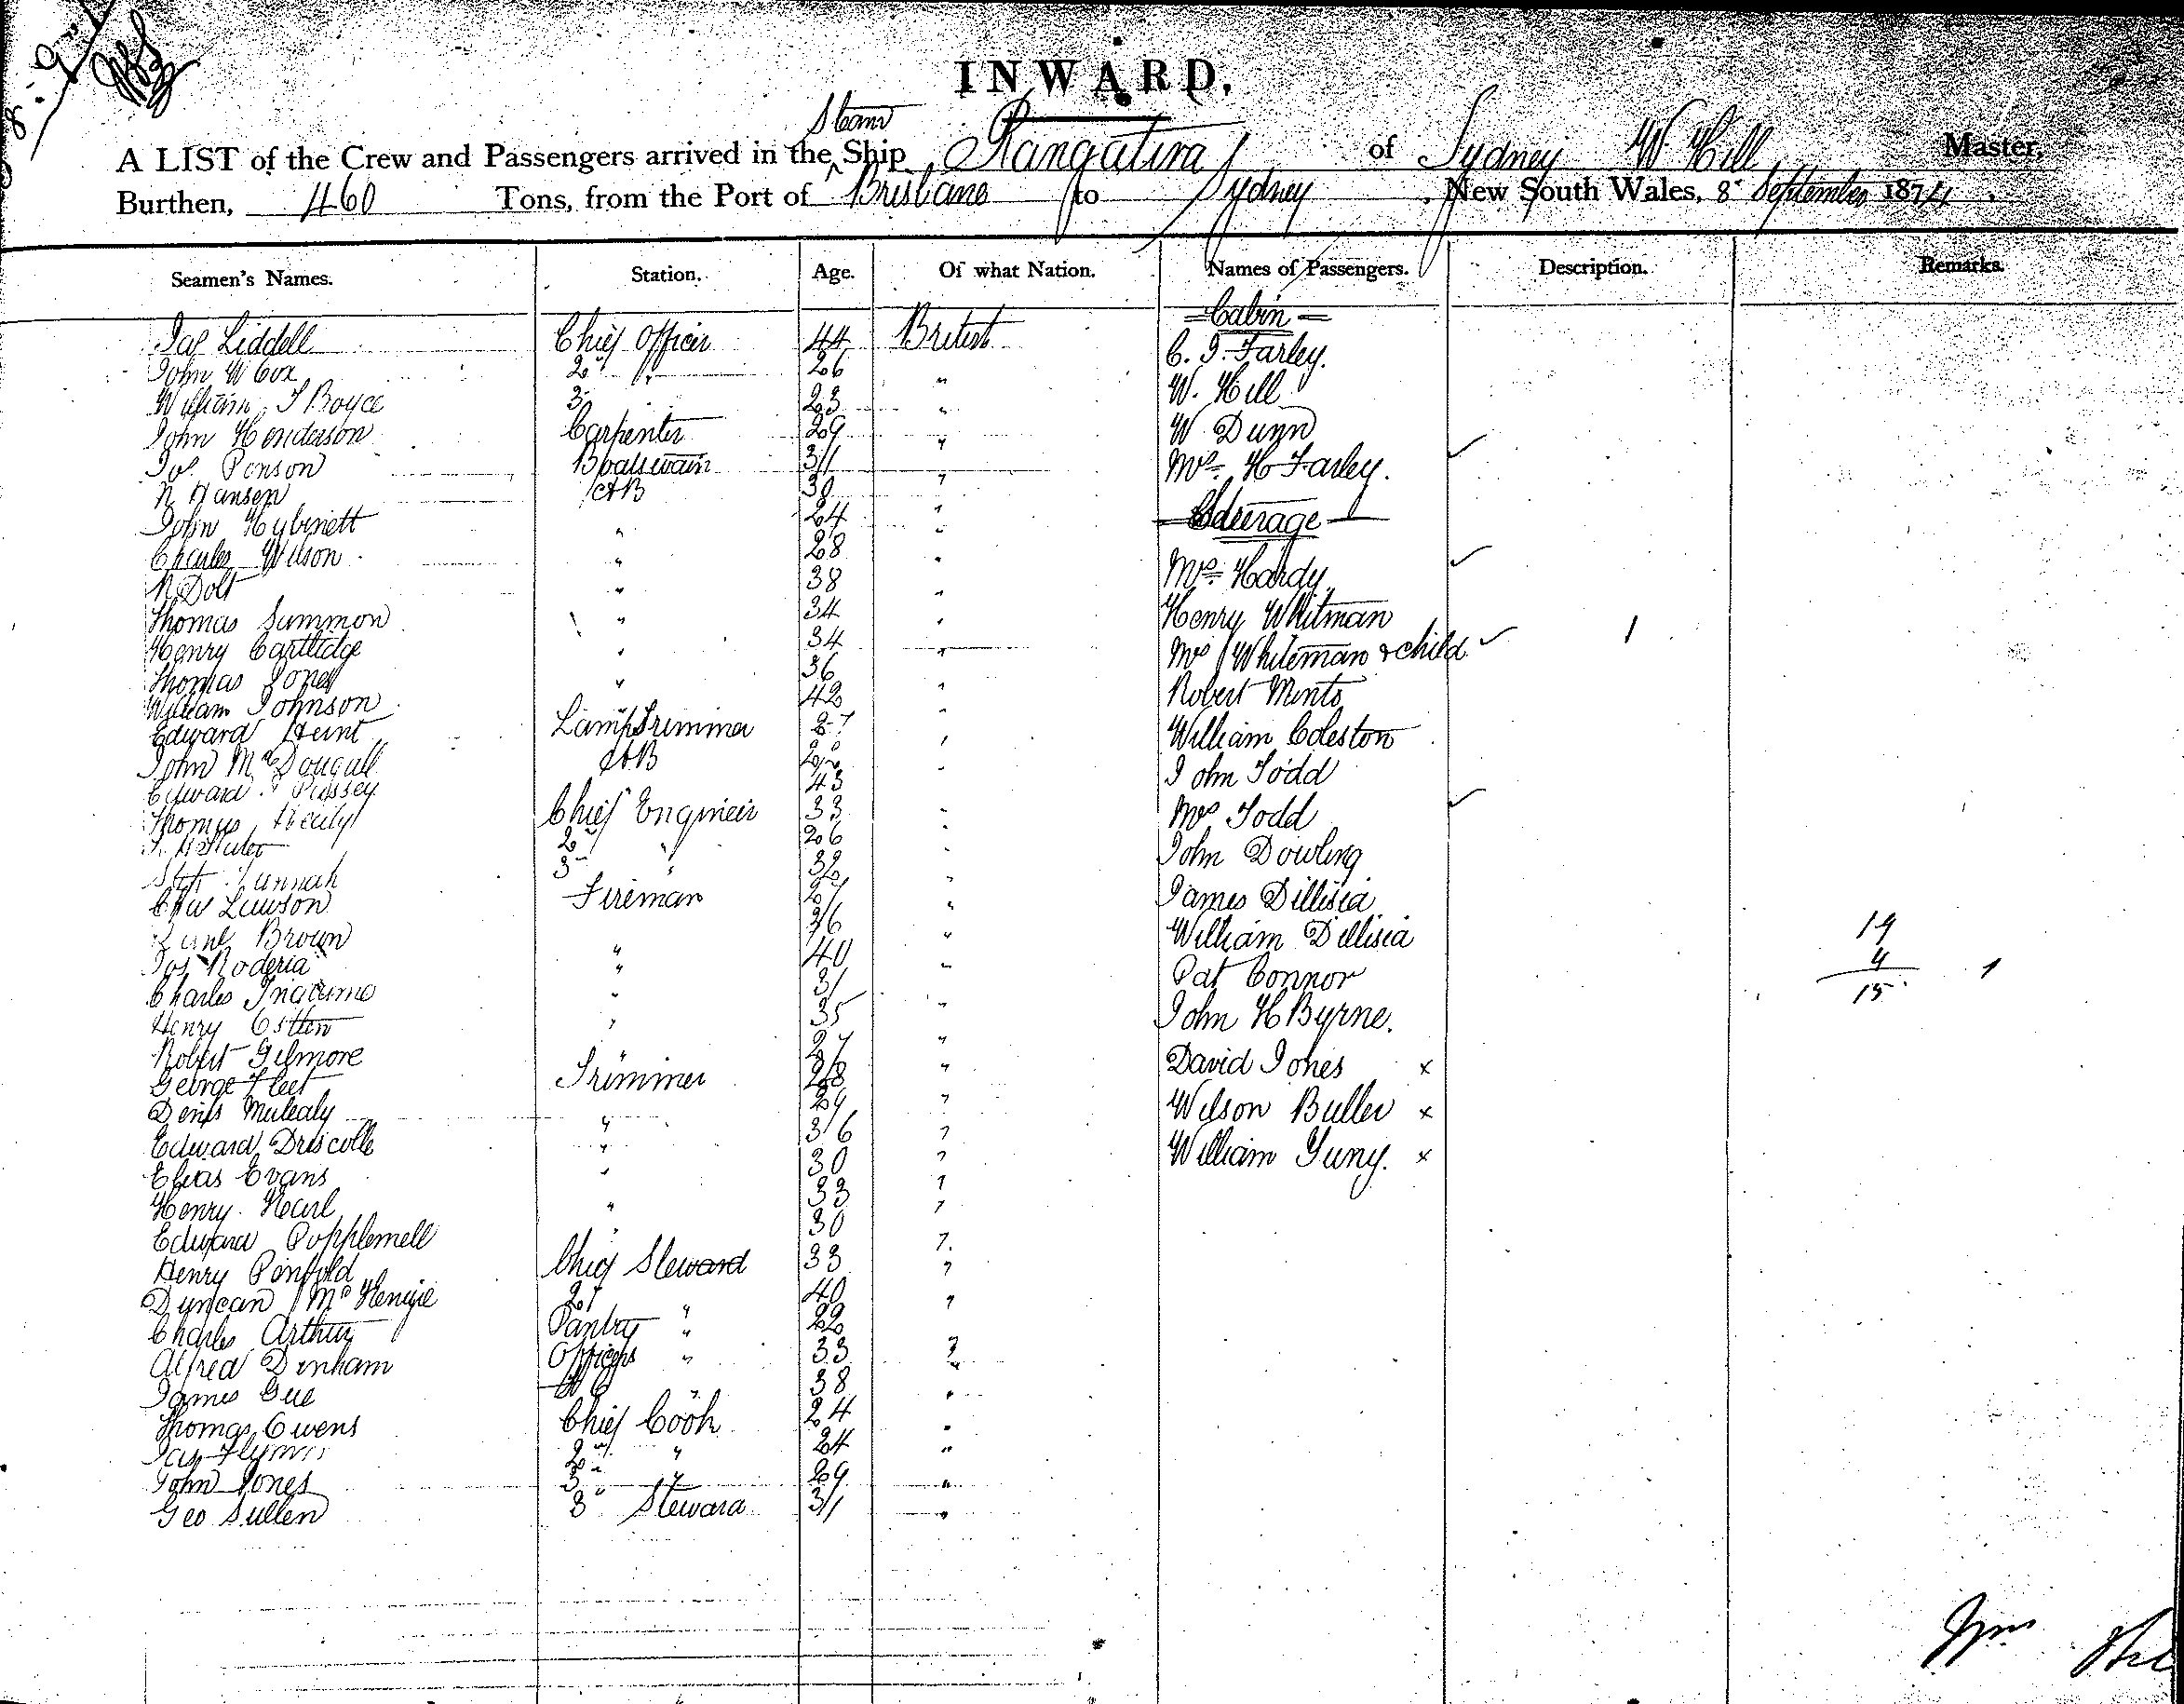 8.9.74
INWARD.
Steam
A LIST of the Crew and Passengers arrived in the Ship Rangatira of Sydney W Hill Master,
Burthen, 460 Tons, from the Port of Brisbane to Sydney, New South Wales, 8 September 1874.
Seamen's Names. Station. Age. Of what Nation. Names of Passengers. Description. Remarks.
Jas Liddell Chief Officer 44 British
John W Cox 2 " 26 "
William J Boyce 3 23 "
John Henderson Carpenter 29 "
Jos. Penson Boatswain 31 "
N Hansen AB 30 "
John Hybinett " 24 "
Charles Wilson " 28 "
N Dolt " 38 "
Thomas Summon " 34 "
Henry Cartlidge " 34 "
Thomas Jones " 36 "
William Johnson 42 "
Edward Hunt Lamp Trimmer 27 "
John McDougall AB "
Edward Pussey 43
Thomas Healy Chief Engineer 33 "
2 " 26 "
3 " 32 "
Chas Lawson Fireman 27 "
Brown 36 "
Jos Roderia " 40 "
Charles " 31 "
Henry Cotten " 35 "
Robert Gilmore " 27 "
George Fleet Trimmer 28 "
Denis Mulealy " 24 "
Edward Driscolle " 36 "
Elias Evans " 30 "
Henry Karl " 33 "
Edward Popplemell " 30 "
Henry Penfold Chief Steward 33 "
Duncan McHenzie 2 " 40 "
Charles Arthur Pantry " 22 "
Alfred Denham Officers " 33 "
James Gue " 38 "
Thomas Owens Chief Cook 24 "
2 " 24 "
John Jones 3 " 29 "
Geo Sullen 3 Steward 31 "
Cabin
C. J. Farley.
W. Hill
W Dunn
Mrs H Farley.
Steerage
Mrs Hardy
Henry Whitman
Mrs Whiteman & child 1
Robert Minto
William Coleston
John Todd
Mrs Todd
John Dowling
James Dillisia
William Dillisia
Pat Connor
John H Byrne.
David Jones x
Wilson Buller x
William Yuny. x
19
4
15 1
Wm